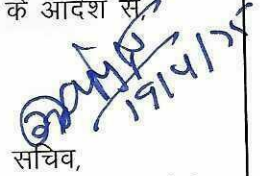 के आदेश से,
19/4/25
सचिव,